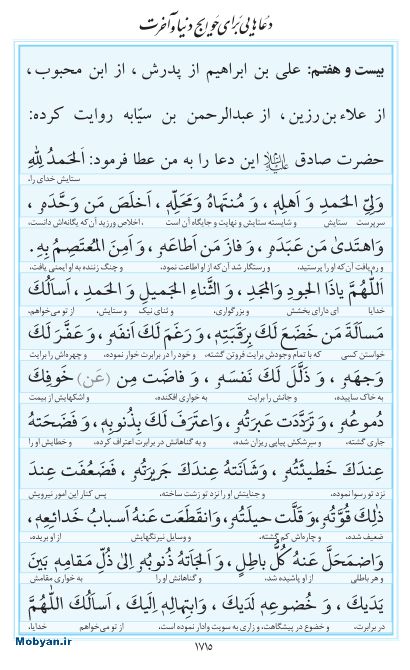 دعاهایی برای حوایج دنیا و آخرت
بیست و هفتم: علی بن ابراهیم از پدرش، از ابن محبوب،
از علاء بن رزین، از عبدالرحمن بن سیّابه روایت کرده:
حضرت صادق علیه‌السلام این دعا را به من عطا فرمود: اَلحَمدُ لِلّٰهِ
ستایش خدای را،
وَلِیِّ الحَمدِ وَ اَهلِهٖ، وَ مُنتَهاهُ وَ مَحَلِّهٖ، اَخلَصَ مَن وَحَّدَهٗ،
سرپرست ستایش و شایسته ستایش و نهایت و جایگاه آن است، اخلاص ورزید آن که یگانه‌اش دانست،
وَاهتَدیٰ مَن عَبَدَهٗ، وَ فازَ مَن اَطاعَهٗ، وَ اَمِنَ المُعتَصِمُ بِهٖ.
و ره یافت آن که او را پرستید، و رستگار شد آن که از او اطاعت نمود، و چنگ زننده به او ایمنی یافت،
اَللّٰهُمَّ یاذَا الجودِ وَالمَجدِ، وَ الثَّناءِ الجَمیلِ وَ الحَمدِ، اَساَلُكَ
خدایا ای دارای بخشش و بزرگواری، و ثنای نیک و ستایش، از تو می‌خواهم،
مَساَلَةَ مَن خَضَعَ لَكَ بِرَقَبَتِهٖ، وَ رَغَمَ لَكَ اَنفَهٗ، وَ عَفَّرَ لَكَ
خواستن کسی که با تمام وجودش برایت فروتن گشته، و خود را در برابرت خوار نموده، و چهره‌اش را برایت
وَجهَهٗ، وَ ذَلَّلَ لَكَ نَفسَهٗ، وَ فاضَت مِن (عَن) خَوفِكَ
به خاک ساییده، و جانش را برایت به خواری افکنده، و اشکهایش از بیمت
دُموعُهٗ، وَ تَرَدَّدَت عَبرَتُهٗ، وَاعتَرَفَ لَكَ بِذُنوبِهٖ، وَ فَضَحَتهُ
جاری گشته، و سرشکش پیاپی ریزان شده، و به گناهانش در برابرت اعتراف کرده، و خطایش او را
عِندَكَ خَطیئَتُهٗ، وَ شانَتهُ عِندَكَ جَریرَتُهٗ، فَضَعُفَت عِندَ
نزد تو رسوا نموده، و جنایتش او را نزد تو زشت ساخته، پس کنار این امور نیرویش
ذٰلِكَ قُوَّتُهٗ، وَ قَلَّت حیلَتُهٗ، وَانقَطَعَت عَنهُ اَسبابُ خَدائِعِهٖ،
ضعیف شده، و چاره‌اش کم گشته، و وسایل نیرنگهایش از او بریده،
وَاضمَحَلَّ عَنهُ کُلُّ باطِلٍ، وَ اَلجَاَتهُ ذُنوبُهٗ اِلیٰ ذُلِّ مَقامِهٖ بَینَ
و هر باطلی از او پاشیده شد، و گناهانش او را به خواری مقامش
یَدَیكَ، وَ خُضوعِهٖ لَدَیكَ، وَابتِهالِهٖ اِلَیكَ، اَساَلُكَ اللّٰهُمَّ
در برابرت، و خضوع در پیشگاهت، و زاری به سویت وادار نموده است، از تو می‌خواهم خدایا،
۱۷۱۵
Mobyan.ir